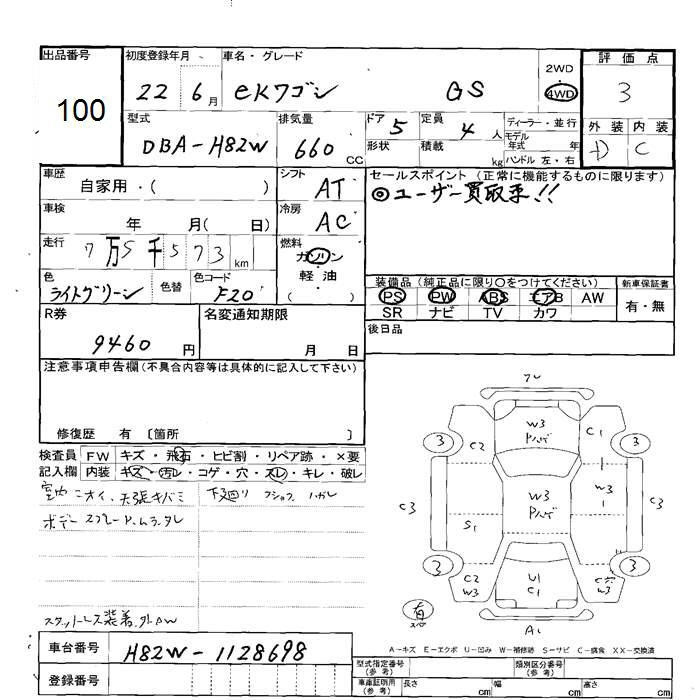 出品番号
100
初度登録年月
22 6月
車名・グレード
eKワゴン GS
2WD
4WD
評価点
3
外装 内装
D C
型式
DBA-H82W
排気量
660 CC
ドア 5
形状
定員 4 人
積載 kg
ディーラー・並行
モデル年式 年
ハンドル 左・右
車歴
自家用・( )
車検
年 月( 日)
走行
7万5千573 km
色
ライトグリーン
色替
色コード
F20
シフト
AT
冷房
AC
燃料
ガソリン
軽・油
( )
セールスポイント (正常に機能するものに限ります)
◎ユーザー買取車!!
装備品 (純正品に限り○をつけてください)
PS PW ABS エアB AW
SR ナビ TV カワ
新車保証書
有・無
後日品
R券
9460 円
名変通知期限
月 日
注意事項申告欄(不具合内容等は具体的に記入して下さい)
修復歴 有 〔箇所 〕
検査員記入欄
FW キズ・飛石・ヒビ割・リペア跡・×要
内装 キズ・汚レ・コゲ・穴・スレ・キレ・破レ
室内ニオイ、天張キバミ
下廻り
ボデー
装着
車台番号
H82W-1128698
登録番号
フレ
W3
ハゲ
C2
C1
3
3
C3
W3
ハゲ
W3
1
C3
S1
3
3
C2
W3
U1
C1
W3
有
A1
A-キズ E-エクボ U-凹み W-補修跡 S-サビ C-腐食 XX-交換済
型式指定番号(参考)
類別区分番号(参考)
車庫証明用(参考)
長さ cm 幅 cm 高さ cm